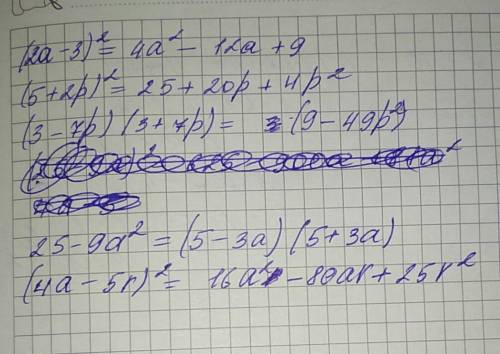 (2a-3)² = 4a² - 12a + 9
(5+2p)² = 25 + 20p + 4p²
(3-7p)(3+7p) = (9-49p²)
25-9a² = (5-3a)(5+3a)
(4a-5r)² = 16a² - 80ar + 25r²